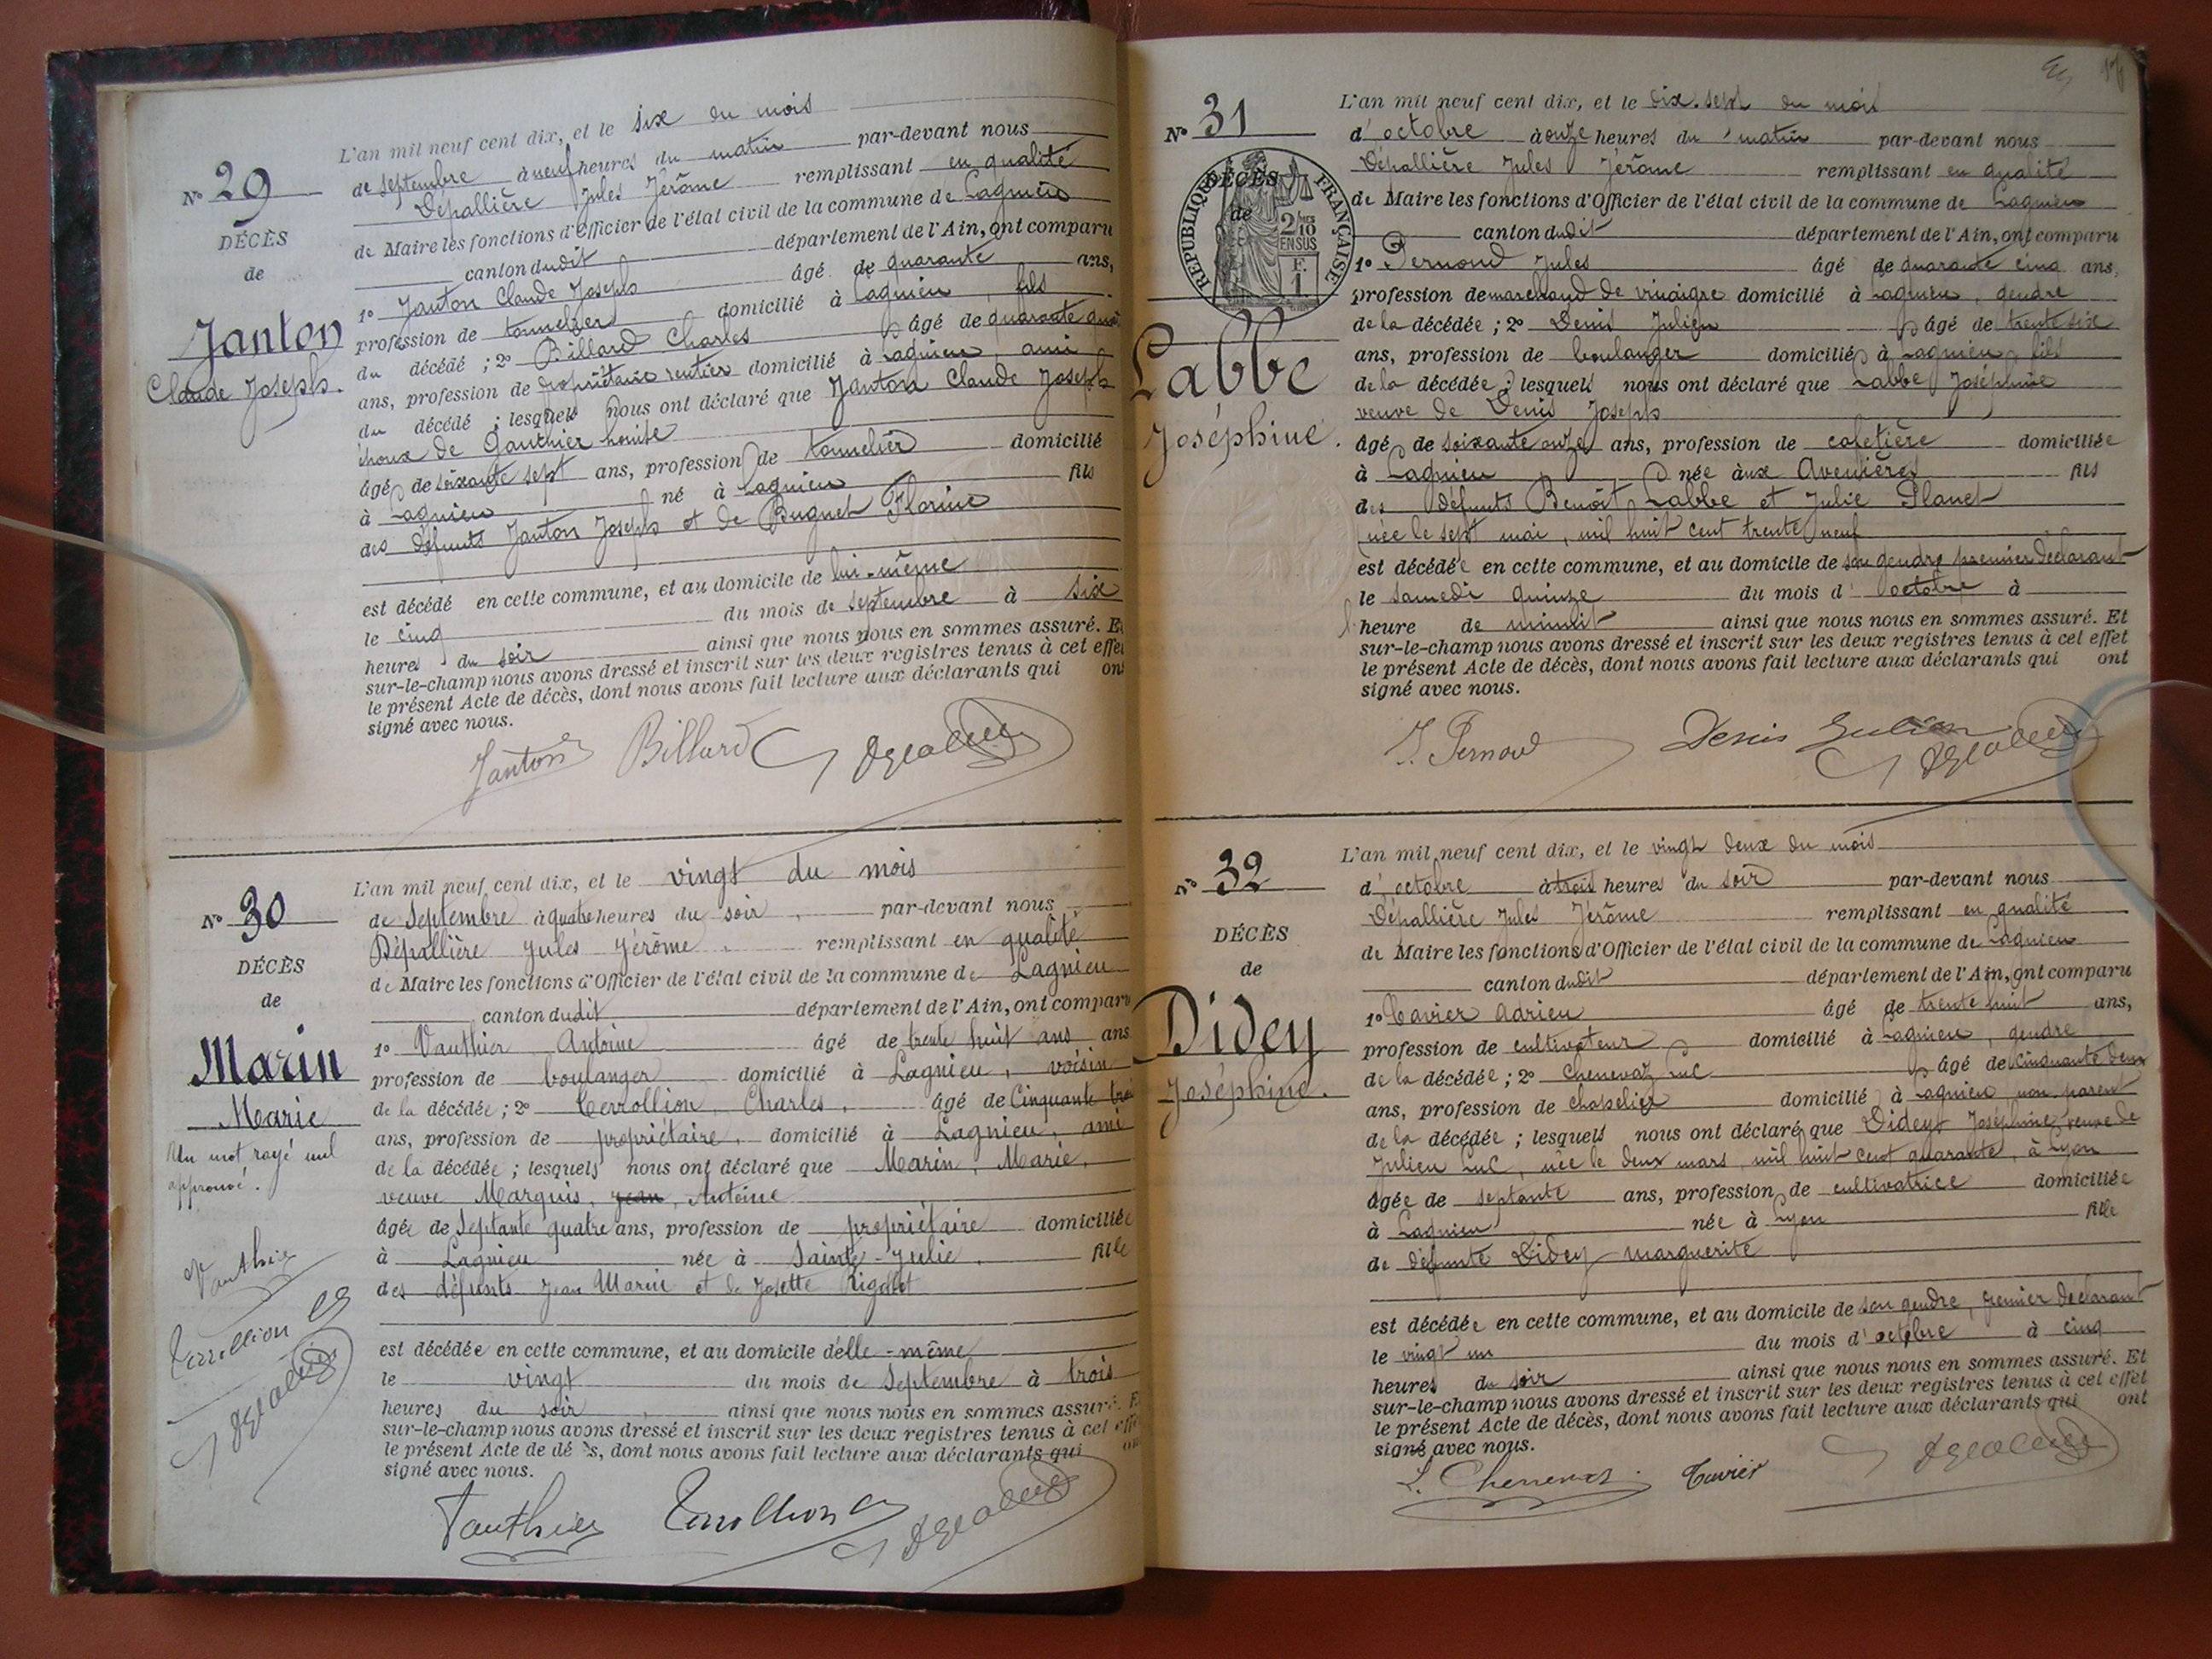 N° 29
DÉCÈS
de
Janton
Claude Joseph.
L'an mil neuf cent dix, et le six du mois
de septembre à neuf heures du matin par-devant nous
Dépallière Jules Jérôme remplissant en qualité
de Maire les fonctions d'Officier de l'état civil de la commune de Lagnieu
canton dudit département de l'Ain, ont comparu
1° Janton Claude Joseph âgé de quarante ans,
profession de tonnelier domicilié à Lagnieu, fils
du décédé ; 2° Billard Charles âgé de quarante
ans, profession de propriétaire rentier domicilié à Lagnieu, ami
du décédé ; lesquels nous ont déclaré que Janton Claude Joseph
époux de Gauthier
âgé de soixante sept ans, profession de tonnelier domicilié
à Lagnieu né à Lagnieu fils
des défunts Janton Joseph et de Buguet Florine
est décédé en cette commune, et au domicile de lui-même
le cinq du mois de septembre à six
heures du soir ainsi que nous nous en sommes assuré. Et
sur-le-champ nous avons dressé et inscrit sur les deux registres tenus à cet effet
le présent Acte de décès, dont nous avons fait lecture aux déclarants qui ont
signé avec nous.
Janton Billard
N° 30
DÉCÈS
de
Marin
Marie
Un mot rayé nul
approuvé.
Vauthier
L'an mil neuf cent dix, et le vingt du mois
de Septembre à quatre heures du soir, par-devant nous
Dépallière Jules Jérôme remplissant en qualité
de Maire les fonctions d'Officier de l'état civil de la commune de Lagnieu
canton dudit département de l'Ain, ont comparu
1° Vauthier Antoine âgé de trente huit ans ans
profession de boulanger domicilié à Lagnieu, voisin
de la décédée ; 2° Terrollion, Charles, âgé de Cinquante trois
ans, profession de propriétaire, domicilié à Lagnieu, ami
de la décédée ; lesquels nous ont déclaré que Marin, Marie,
veuve Marquis, Jean, Antoine
âgée de Septante quatre ans, profession de propriétaire domiciliée
à Lagnieu née à Sainte-Julie, fille
des défunts Jean Marin et de Josette Rigolet
est décédée en cette commune, et au domicile d'elle-même
le vingt du mois de Septembre à trois
heures du soir, ainsi que nous nous en sommes assuré. Et
sur-le-champ nous avons dressé et inscrit sur les deux registres tenus à cet effet
le présent Acte de dé s, dont nous avons fait lecture aux déclarants qui ont
signé avec nous.
Vauthier Terrollion
N° 31
DÉCÈS
de
RÉPUBLIQUE FRANÇAISE
2/10 EN SUS
F. 1
Labbe
Joséphine.
L'an mil neuf cent dix, et le dix-sept du mois
d'octobre à onze heures du matin par-devant nous
Dépallière Jules Jérôme remplissant en qualité
de Maire les fonctions d'Officier de l'état civil de la commune de Lagnieu
canton dudit département de l'Ain, ont comparu
1° Pernoud Jules âgé de quarante cinq ans,
profession de marchand de vinaigre domicilié à Lagnieu, gendre
de la décédée ; 2° Denis Julien âgé de trente six
ans, profession de boulanger domicilié à Lagnieu, fils
de la décédée ; lesquels nous ont déclaré que Labbe Joséphine
veuve de Denis Joseph
âgé de soixante onze ans, profession de cafetière domiciliée
à Lagnieu née aux Avenières fils
des défunts Benoît Labbe et Julie Planet
née le sept mai, mil huit cent trente neuf
est décédée en cette commune, et au domicile de son gendre premier déclarant
le samedi quinze du mois d'octobre à
l'heure de minuit ainsi que nous nous en sommes assuré. Et
sur-le-champ nous avons dressé et inscrit sur les deux registres tenus à cet effet
le présent Acte de décès, dont nous avons fait lecture aux déclarants qui ont
signé avec nous.
J. Pernoud Denis Julien
N° 32
DÉCÈS
de
Didey
Joséphine.
L'an mil neuf cent dix, et le vingt deux du mois
d'octobre à trois heures du soir par-devant nous
Dépallière Jules Jérôme remplissant en qualité
de Maire les fonctions d'Officier de l'état civil de la commune de Lagnieu
canton dudit département de l'Ain, ont comparu
1° Tavier Adrien âgé de trente huit ans,
profession de cultivateur domicilié à Lagnieu, gendre
de la décédée ; 2° Chenevaz Luc âgé de cinquante deux
ans, profession de chapelier domicilié à Lagnieu non parent
de la décédée ; lesquels nous ont déclaré que Didey Joséphine, veuve de
Julien Luc, née le deux mars, mil huit cent quarante, à Lyon
âgée de septante ans, profession de cultivatrice domiciliée
à Lagnieu née à Lyon fille
de défunte Didey Marguerite
est décédée en cette commune, et au domicile de son gendre, premier déclarant
le vingt un du mois d'octobre à cinq
heures du soir ainsi que nous nous en sommes assuré. Et
sur-le-champ nous avons dressé et inscrit sur les deux registres tenus à cet effet
le présent Acte de décès, dont nous avons fait lecture aux déclarants qui ont
signé avec nous.
L. Chenevaz. Tavier